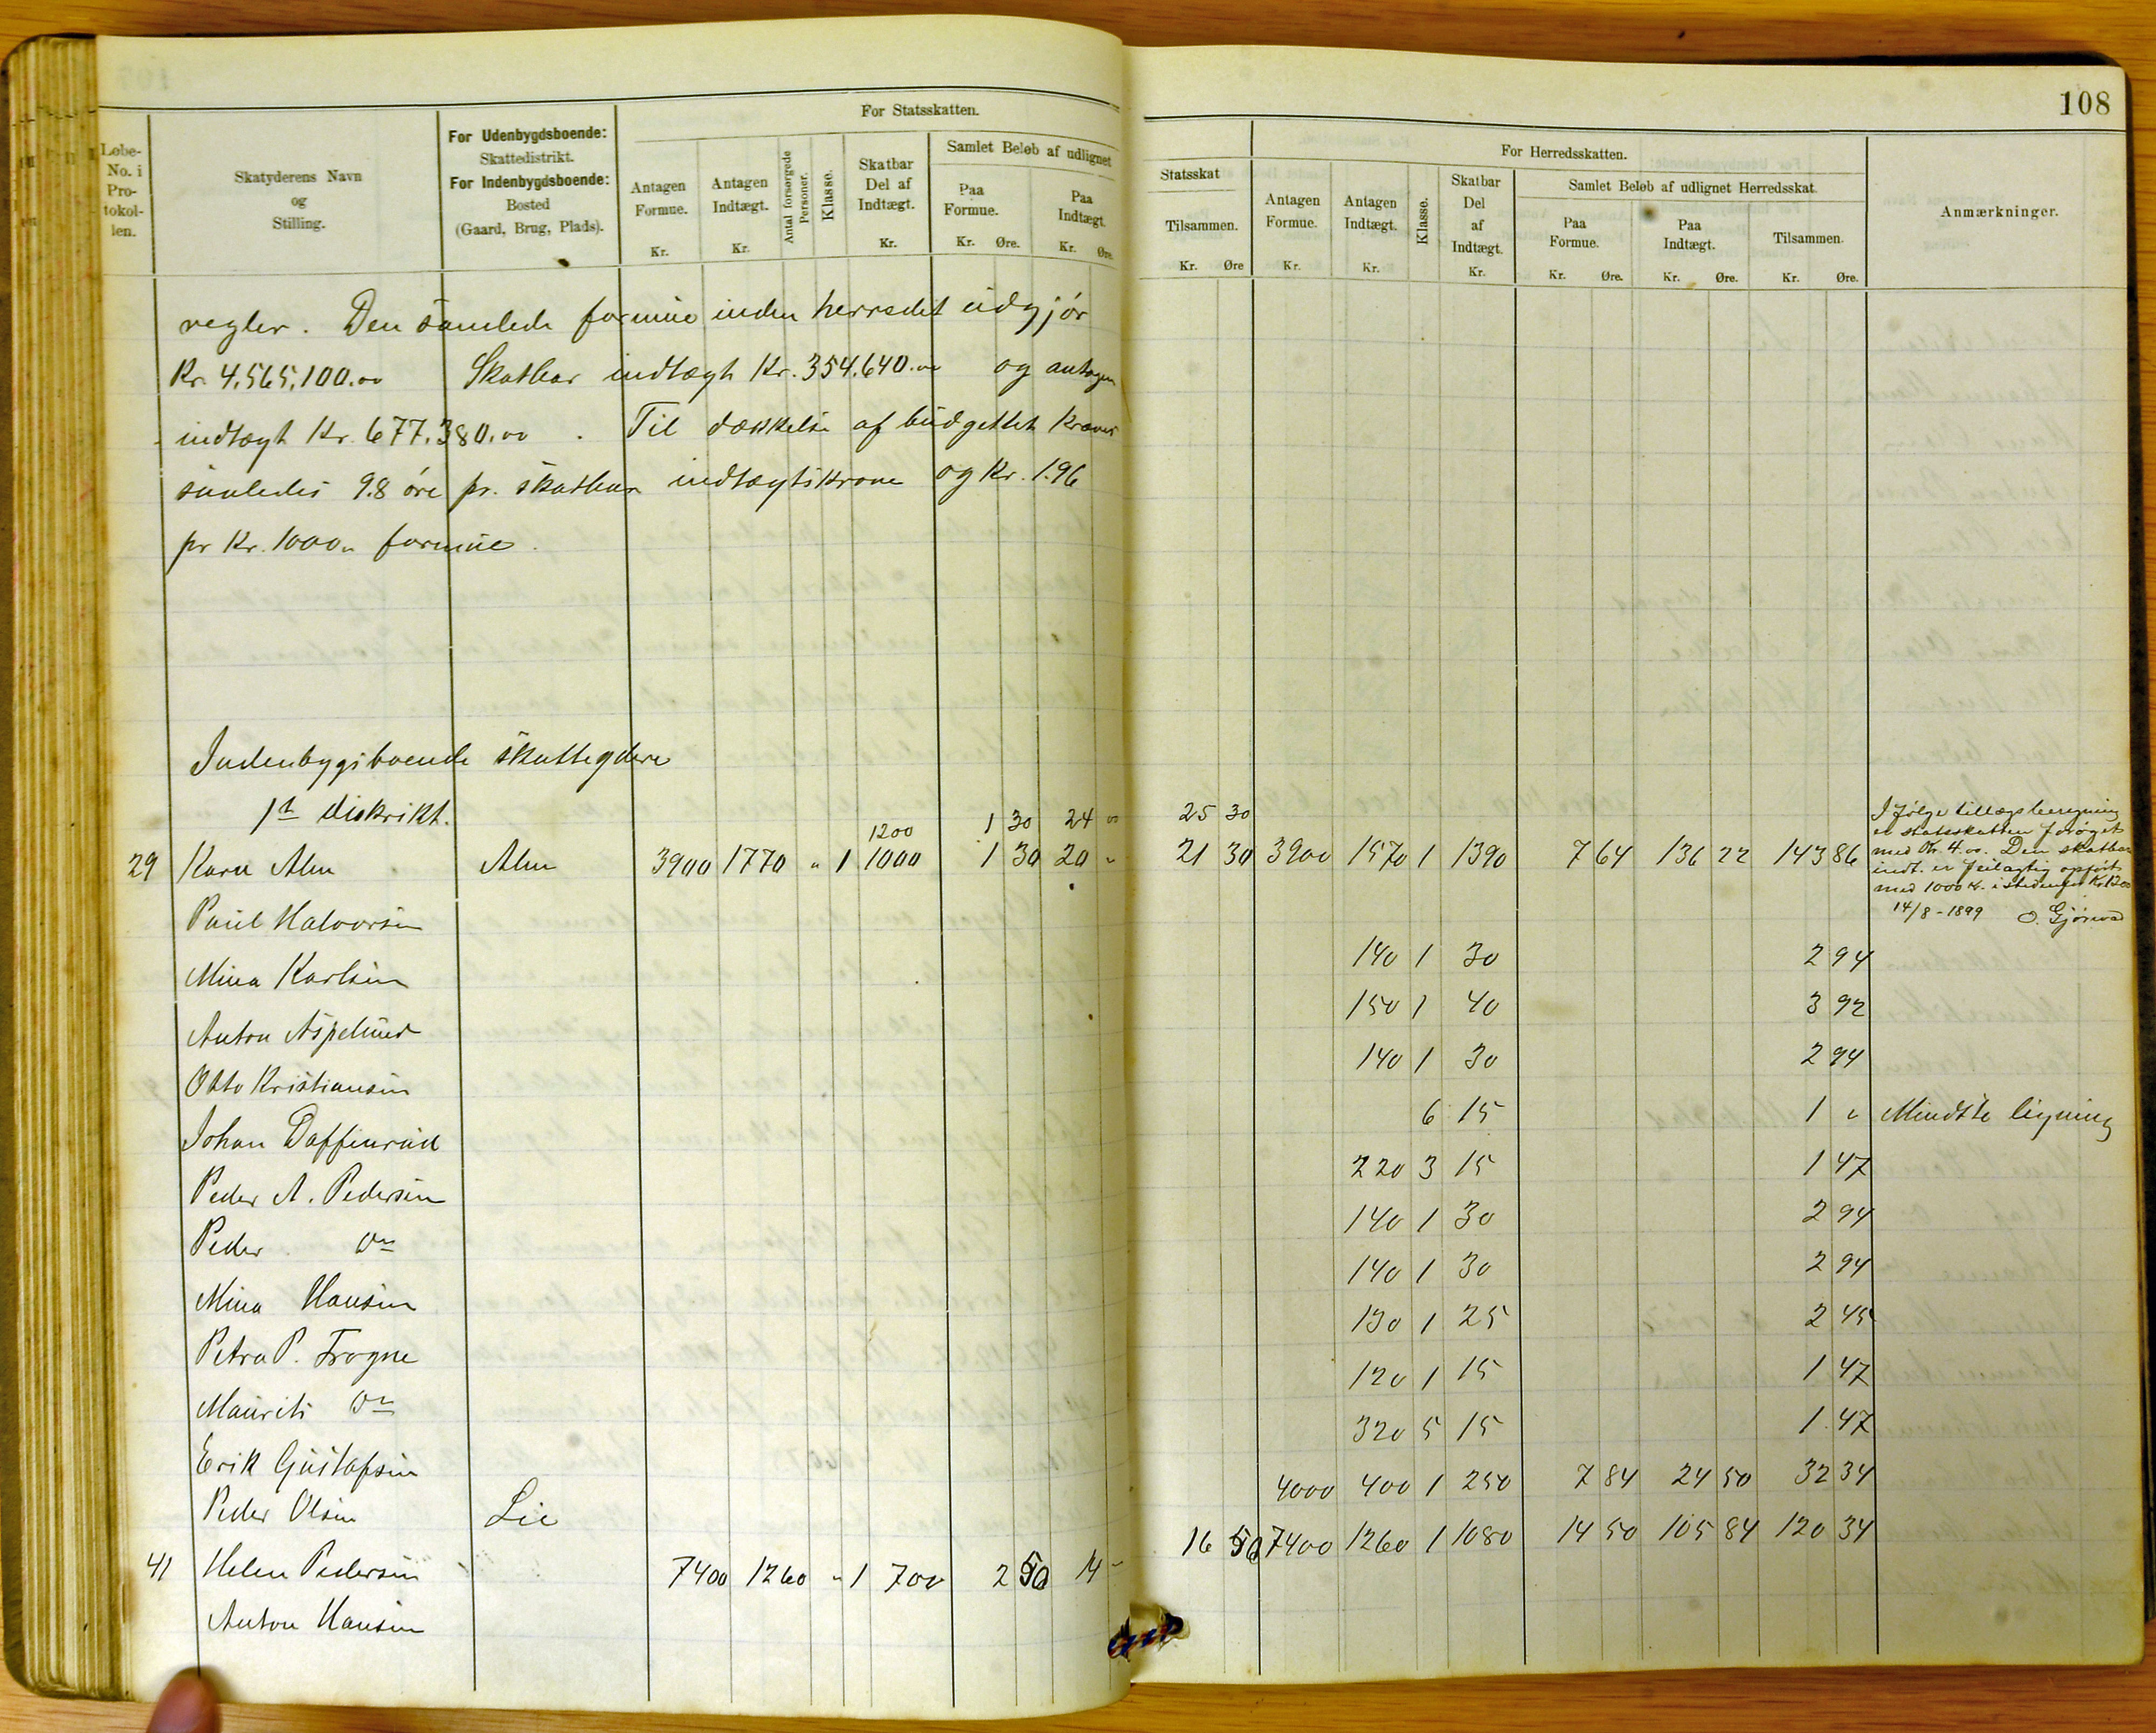 108
Løbe-No. i Pro-tokol-len.
Skatyderens Navn og Stilling.
For Udenbygdsboende: Skattedistrikt. For Indenbygdsboende: Bosted (Gaard, Brug, Plads).
For Statsskatten.
Antagen Formue. Kr.
Antagen Indtægt. Kr.
Antal forsørgede Personer.
Klasse.
Skatbar Del af Indtægt. Kr.
Samlet Beløb af udlignet
Paa Formue. Kr. Øre.
Paa Indtægt. Kr. Øre.
Statsskat
Tilsammen. Kr. Øre
For Herredsskatten.
Antagen Formue. Kr.
Antagen Indtægt. Kr.
Klasse.
Skatbar Del af Indtægt. Kr.
Samlet Beløb af udlignet Herredsskat.
Paa Formue. Kr. Øre.
Paa Indtægt. Kr. Øre.
Tilsammen. Kr. Øre.
Anmærkninger.
regler. Den samlede formue inden herredet udgjør
Kr. 4,565,100.00 Skatbar indtægt Kr. 354.640.00 og antagen
indtægt Kr. 677.380.00. Til dækkelse af budgettet kræves
saaledes 9.8 øre pr. skatbar indtægtskrone og Kr. 1.96
pr Kr. 1000.. formue.
Indenbygsboende skatteydere
1st distrikt.
1200 1 30 24 00 25 30
29 Karn Alm Alm 3900 1770 " 1 1000 1 30 20 " 21 30 3900 1570 1 1390 7 64 136 22 143 86
I følge tillægsberegning
er statsskatten forøget
med Kr. 4.00. Den skatbar
indt. er feilagtig opført
med 1000 kr. istedenfor Kr 1200
14/8-1899
Paul Halvorsen 140 1 30 2 94
Mina Karlsen 150 1 40 3 92
Anton Aspelund 140 1 30 2 94
Otto Kristiansen 6 15 1 " Mindste ligning
Johan Daffinrud 220 3 15 1 47
Peder A. Pedersen 140 1 30 2 94
Peder Do 140 1 30 2 94
Mina Hansen 130 1 25 2 45
Petra P. Frogne 120 1 15 1 47
Maurits Do 320 5 15 1 47
Erik Gustafsen 4000 400 1 250 7 84 24 50 32 34
Peder Olsen Lie
41 Helen Pedersen 7400 1260 " 1 700 2 50 14 - 16 50 7400 1260 1 1080 14 50 105 84 120 34
Anton Hansen